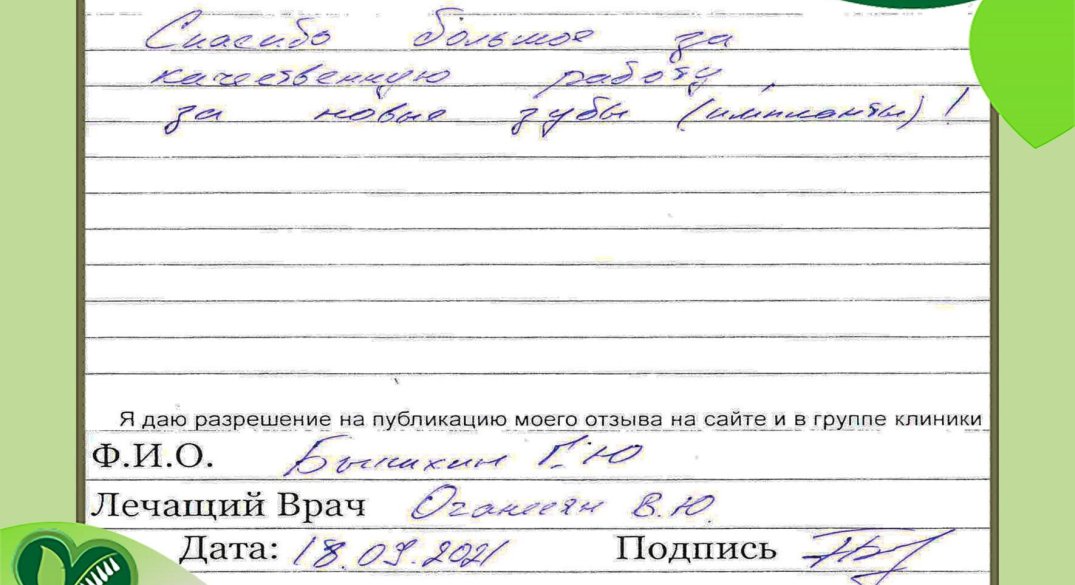 Спасибо большое за
качественную работу,
за новые зубы (импланты)!
Я даю разрешение на публикацию моего отзыва на сайте и в группе клиники
Ф.И.О. Г.Ю
Лечащий Врач Оганесян В.Ю.
Дата: 18.09.2021 Подпись